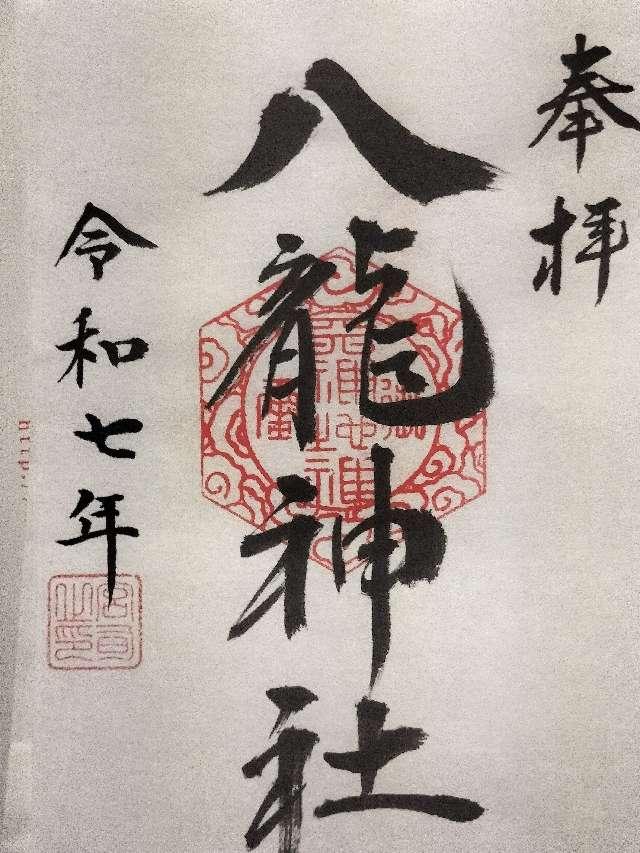 奉拝
八龍神社
令和七年